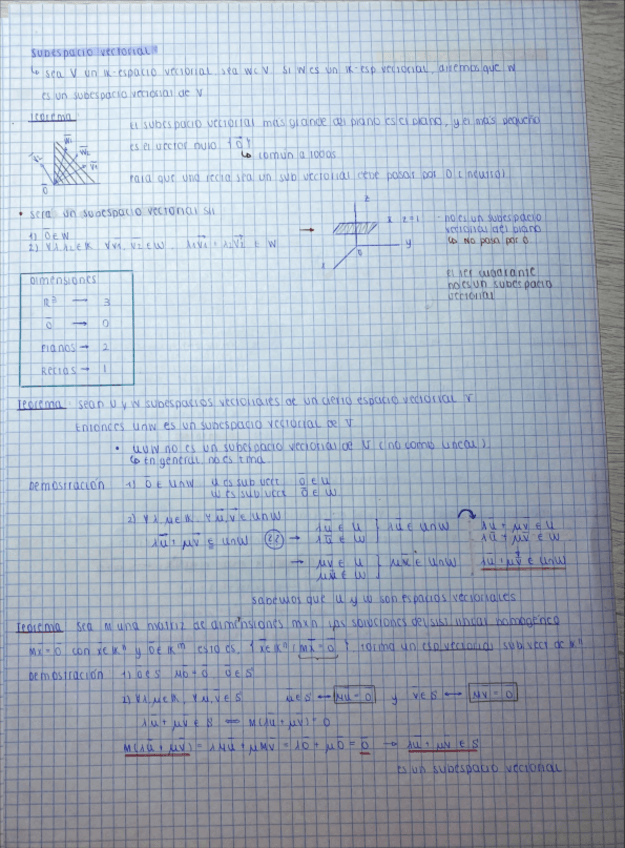 Subespacio vectorial
↳ sea V un K-espacio vectorial, sea W⊂V si W es un K-esp vectorial, diremos que W
es un subespacio vectorial de V
Teorema
El subespacio vectorial más grande del plano es el plano, y el más pequeño
es el vector nulo {0}
↳ común a todos
Para que una recta sea un sub vectorial debe pasar por 0 (neutro)
• será un subespacio vectorial si:
1) 0∈W
2) ∀λ1,λ2∈K ∀v1,v2∈W λ1v1+λ2v2 ∈ W
z
z=1
y
x
0
- no es un subespacio
vectorial del plano
↳ No pasa por 0
el 1er cuadrante
no es un subespacio
vectorial
Dimensiones
R³ → 3
0 → 0
Planos → 2
Rectas → 1
Teorema: sean U y W subespacios vectoriales de un cierto espacio vectorial V
Entonces U∩W es un subespacio vectorial de V
• U∪W no es un subespacio vectorial de V (no como lineal)
↳ En general no es
Demostración 1) 0 ∈ U∩W U es sub vect 0 ∈ U
W es sub vect 0 ∈ W
2) ∀λ,μ∈K, ∀u,v ∈ U∩W
λu+μv ∈ U∩W (??) → λu ∈ U λu ∈ U∩W λu+μv ∈ U
λu ∈ W λu+μv ∈ W
→ μv ∈ U μv ∈ U∩W λu+μv ∈ U∩W
μv ∈ W
sabemos que U y W son espacios vectoriales
Teorema: Sea M una matriz de dimensiones mxn las soluciones del sist lineal homogéneo
Mx=0 con x∈Kⁿ y 0∈Kᵐ esto es, {x∈Kⁿ / Mx=0} forma un esp vectorial sub vect de Kⁿ
Demostración 1) 0∈S M0=0, 0∈S
2) ∀λ,μ∈K, ∀u,v∈S u∈S ↔ Mu=0 y v∈S ↔ Mv=0
λu+μv ∈ S ⇔ M(λu+μv)=0
M(λu+μv) = λMu+μMv = λ0+μ0 = 0 → λu+μv ∈ S
es un subespacio vectorial